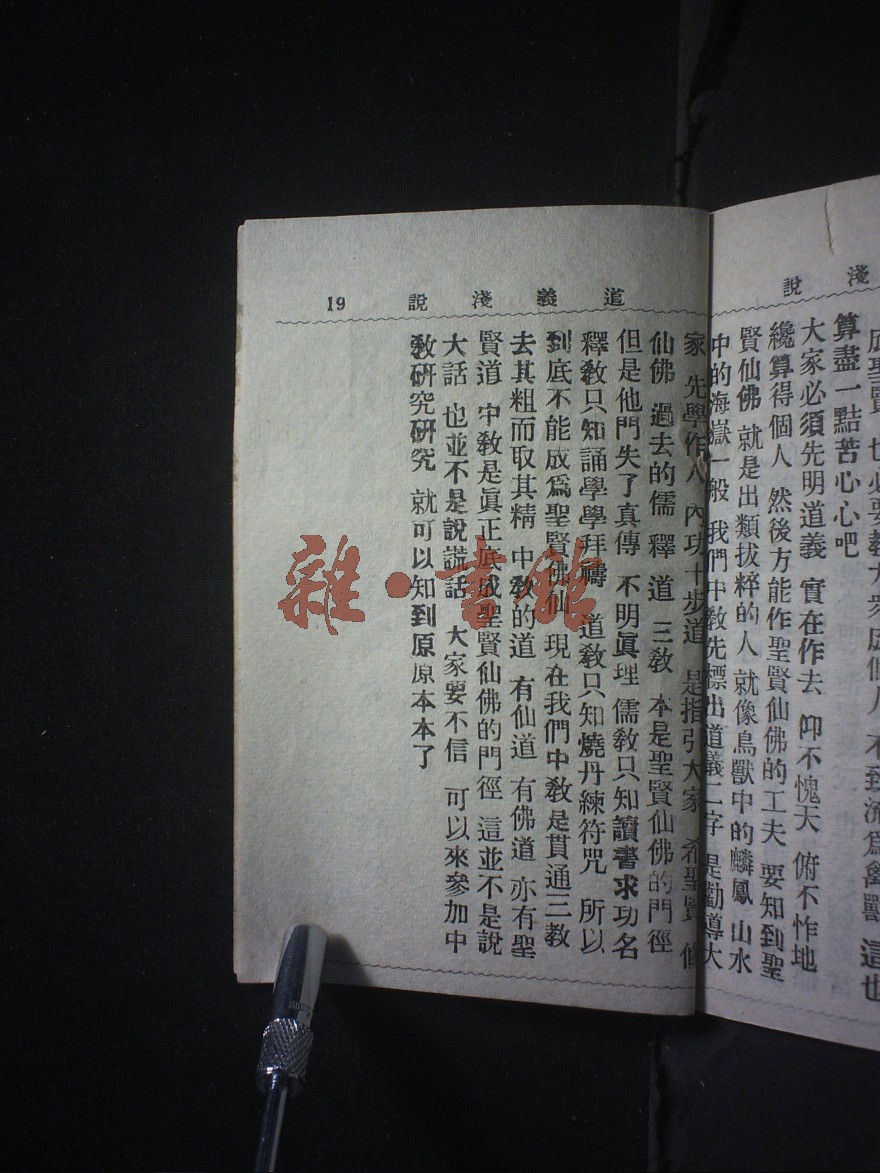 說 淺
底聖賢 也必要教大衆底個人 不致流爲禽獸 這也
算盡一點苦心心吧
大家必須先明道義 實在作去 仰不愧天 俯不怍地
纔算得個人 然後方能作聖賢仙佛的工夫 要知到聖
賢仙佛 就是出類拔粹的人 就像鳥獸中的麟鳳 山水
中的海嶽一般 我們中教先標出道義二字 是勸導大
19 說 淺 義 道
家 先學作人 內功十步道 是指引大家 希聖賢 修
仙佛 過去的儒 釋 道 三教 本是聖賢仙佛的門徑
但是他門失了真傳 不明眞理 儒教只知讀書求功名
釋教只知誦學學拜禱 道教只知燒丹練符咒 所以
到底不能成爲聖賢佛仙 現在我們中教是貫通三教
去其粗而取其精 中教的道 有仙道 有佛道 亦有聖
賢道 中教是眞正底成聖賢仙佛的門徑 這並不是說
大話 也並不是說謊話 大家要不信 可以來參加中
教研究研究 就可以知到原原本本了
雜·書館